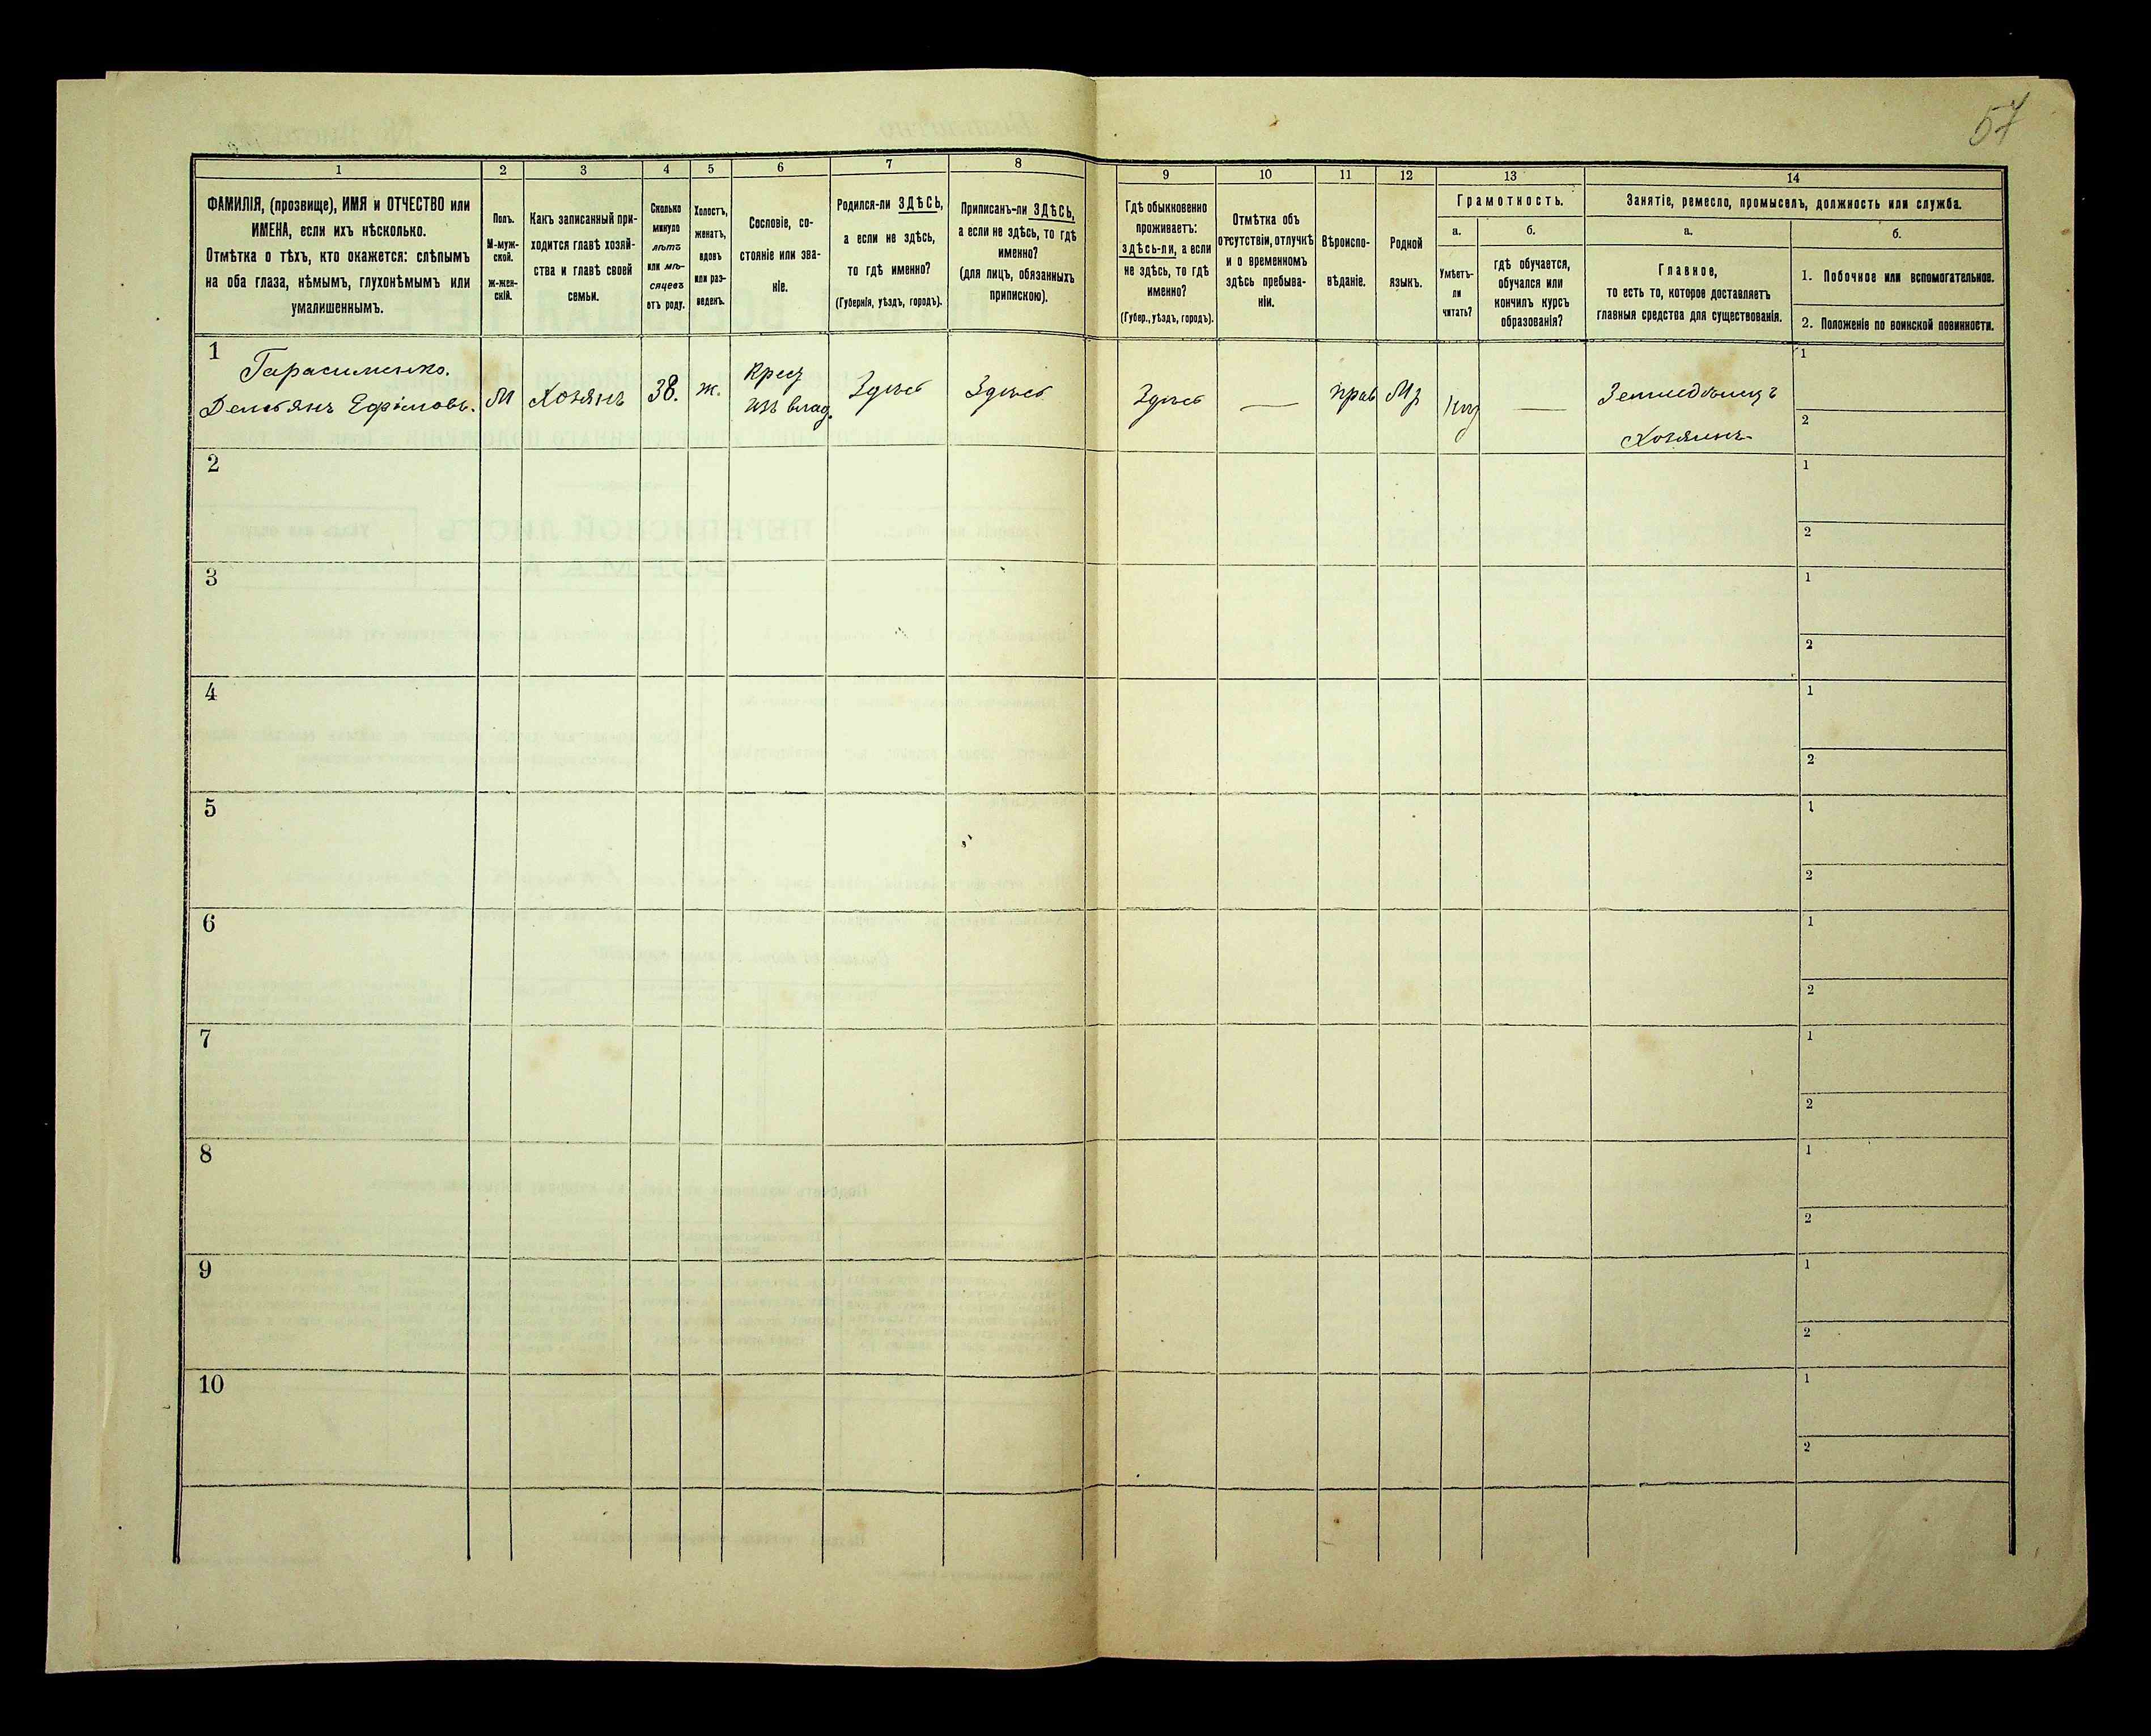 57
1
2
3
4
5
6
7
8
9
10
11
12
13
14
ФАМИЛІЯ, (прозвище), ИМЯ и ОТЧЕСТВО или
ИМЕНА, если ихъ нѣсколько.
Отмѣтка о тѣхъ, кто окажется: слѣпымъ
на оба глаза, нѣмымъ, глухонѣмымъ или
умалишеннымъ.
Полъ.
М-муж-
ской.
ж-жен-
скій.
Какъ записанный при-
ходится главѣ хозяй-
ства и главѣ своей
семьи.
Сколько
минуло
лѣтъ
или мѣ-
сяцевъ
отъ роду.
Холостъ,
женатъ,
вдовъ
или раз-
веденъ.
Сословіе, со-
стояніе или зва-
ніе.
Родился-ли ЗДѢСЬ,
а если не здѣсь,
то гдѣ именно?
(Губернія, уѣздъ, городъ).
Приписанъ-ли ЗДѢСЬ,
а если не здѣсь, то гдѣ
именно?
(для лицъ, обязанныхъ
припискою).
Гдѣ обыкновенно
проживаетъ:
здѣсь-ли, а если
не здѣсь, то гдѣ
именно?
(Губер., уѣздъ, городъ).
Отмѣтка объ
отсутствіи, отлучкѣ
и о временномъ
здѣсь пребыва-
ніи.
Вѣроиспо-
вѣданіе.
Родной
языкъ.
Грамотность.
а.
Умѣетъ-
ли
читать?
б.
гдѣ обучается,
обучался или
кончилъ курсъ
образованія?
Занятіе, ремесло, промыселъ, должность или служба.
а.
Главное,
то есть то, которое доставляетъ
главныя средства для существованія.
б.
1. Побочное или вспомогательное.
2. Положеніе по воинской повинности.
1
Гарасименко.
Демьянъ Ефімовъ.
М
Хозянъ
38.
ж.
Крес
изъ влад.
Здѣсь
Здѣсь
Здѣсь
—
прав
Мр
—
Земледѣлецъ
Хозяинъ
1
2
2
1
2
3
1
2
4
1
2
5
1
2
6
1
2
7
1
2
8
1
2
9
1
2
10
1
2